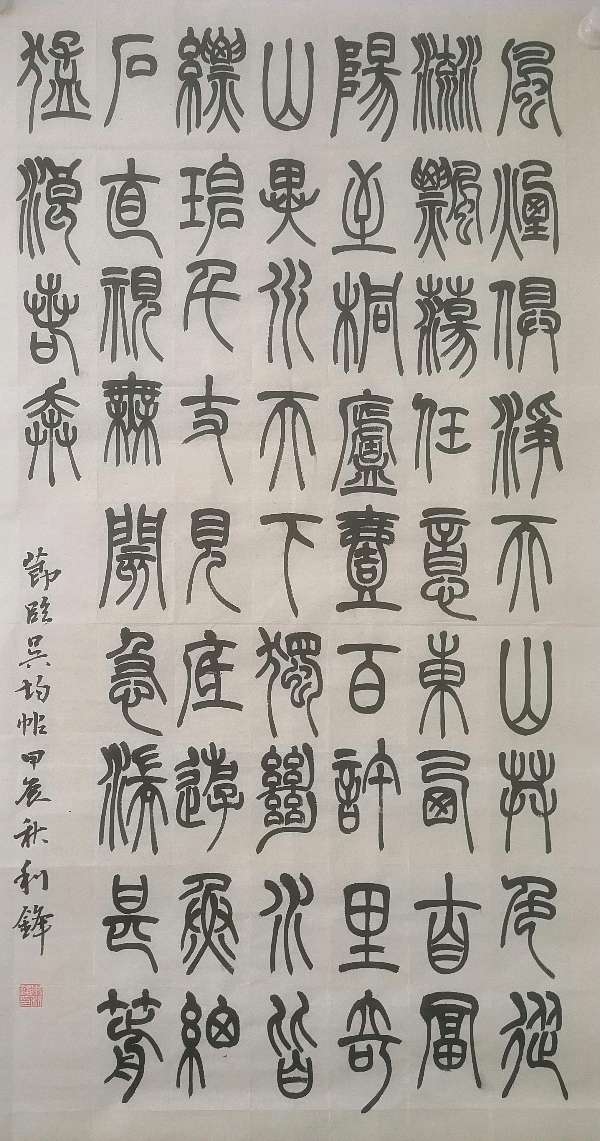 風煙俱淨天山共色從
流飄蕩任意東西自富
陽至桐廬壹百許里奇
山異水天下獨絕水皆
縹碧千丈見底遊魚細
石直視無閡急湍甚箭
猛浪若奔
節臨吳均帖甲辰秋利鋒